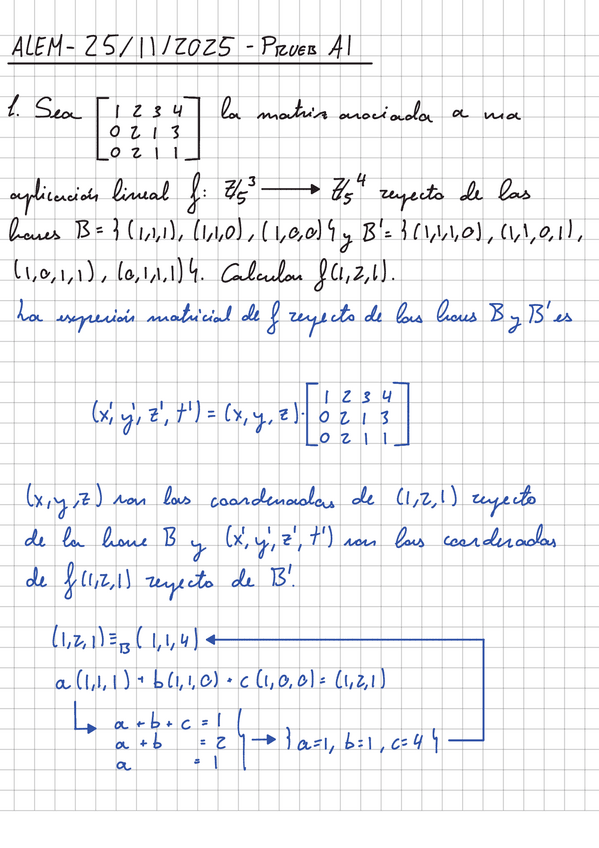 ALEM - 25/11/2025 - PRUEB A1
1. Sea [1 2 3 4
0 2 1 3
0 2 1 1] la matriz asociada a una
aplicación lineal f: ℤ₅³ → ℤ₅⁴ respecto de las
bases B = {(1,1,1), (1,1,0), (1,0,0)} y B' = {(1,1,1,0), (1,1,0,1),
(1,0,1,1), (0,1,1,1)}. Calcular f(1,2,1).
La expresión matricial de f respecto de las bases B y B' es
(x', y', z', t') = (x, y, z) · [1 2 3 4
0 2 1 3
0 2 1 1]
(x,y,z) son las coordenadas de (1,2,1) respecto
de la base B y (x', y', z', t') son las coordenadas
de f(1,2,1) respecto de B'.
(1,2,1) ≡_B (1,1,4)
a(1,1,1) + b(1,1,0) + c(1,0,0) = (1,2,1)
a + b + c = 1
a + b = 2 } → {a=1, b=1, c=4}
a = 1